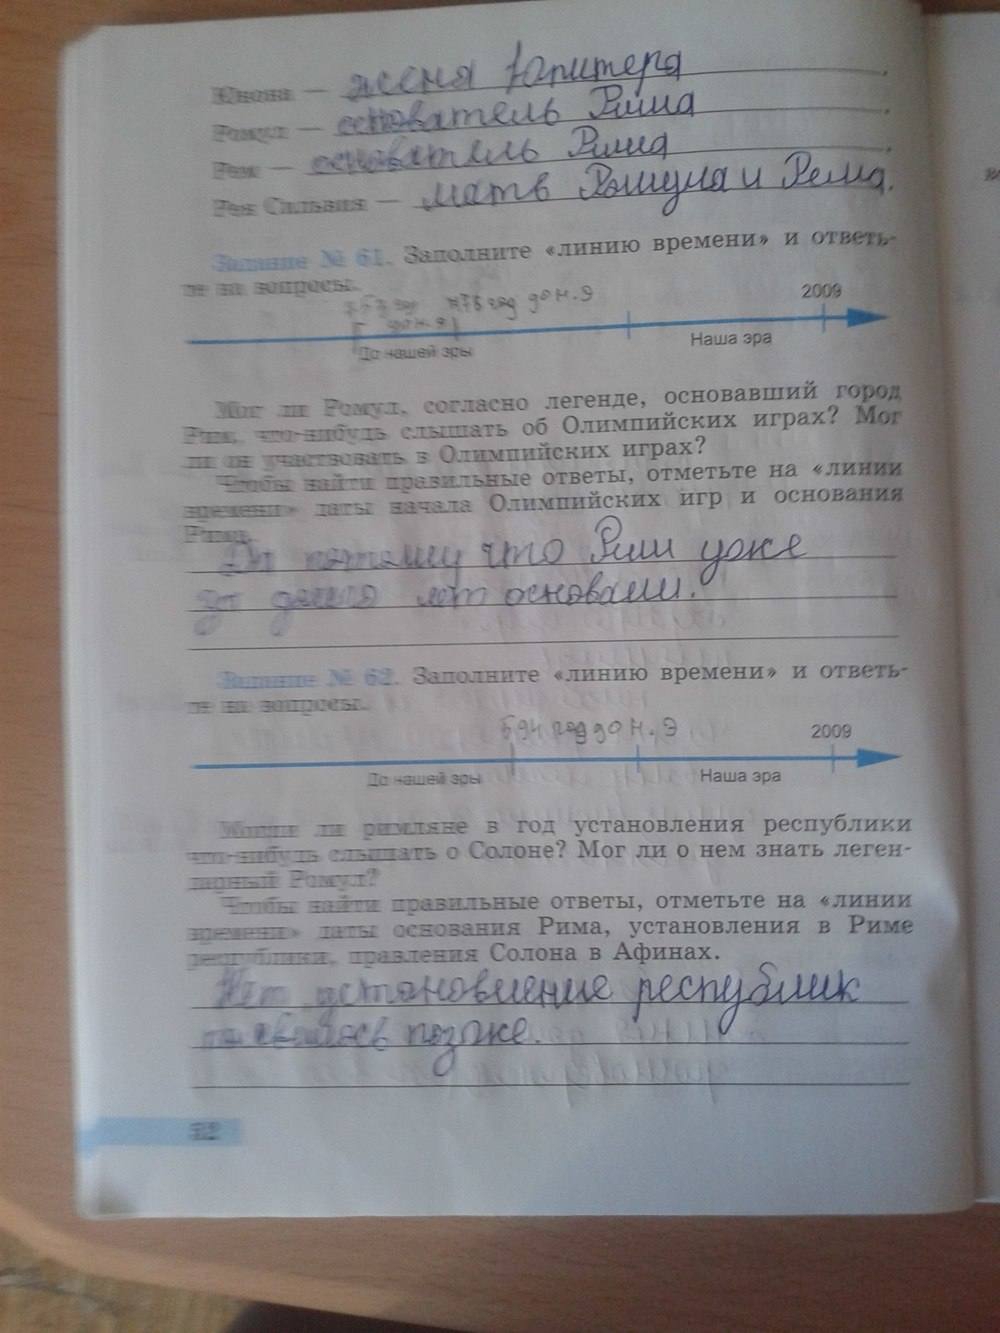 Юнона — жена Юпитера.
Ромул — основатель Рима.
Рем — основатель Рима.
Рея Сильвия — мать Ромула и Рема.
Задание № 61. Заполните «линию времени» и ответь-
те на вопросы.
753 год 776 год до н.э
до н.э
2009
До нашей эры
Наша эра
Мог ли Ромул, согласно легенде, основавший город
Рим, что-нибудь слышать об Олимпийских играх? Мог
ли он участвовать в Олимпийских играх?
Чтобы найти правильные ответы, отметьте на «линии
времени» даты начала Олимпийских игр и основания
Рима.
потому что Рим уже
лет основали.
Задание № 62. Заполните «линию времени» и ответь-
те на вопросы.
594 год до н.э
2009
До нашей эры
Наша эра
Могли ли римляне в год установления республики
что-нибудь слышать о Солоне? Мог ли о нем знать леген-
дарный Ромул?
Чтобы найти правильные ответы, отметьте на «линии
времени» даты основания Рима, установления в Риме
республики, правления Солона в Афинах.
Нет установление республик
позже.
52